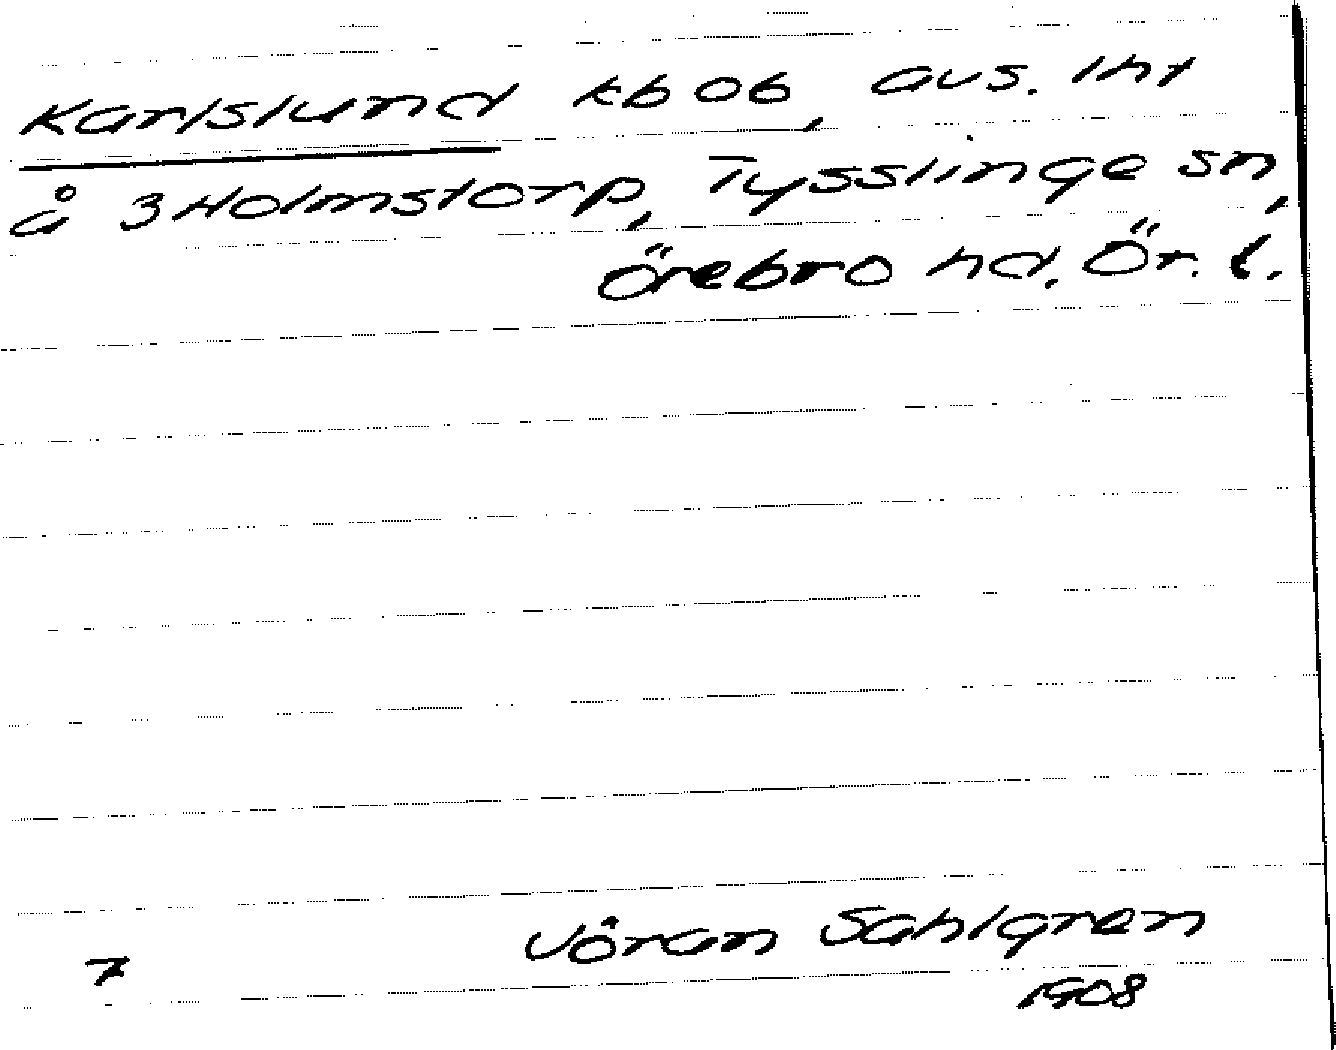 Karlslund kb 06, avs. lht
å 3 Holmstorp, Tysslinge sn,
Örebro hd. Ör. l.
Jöran Sahlgren
7
1908